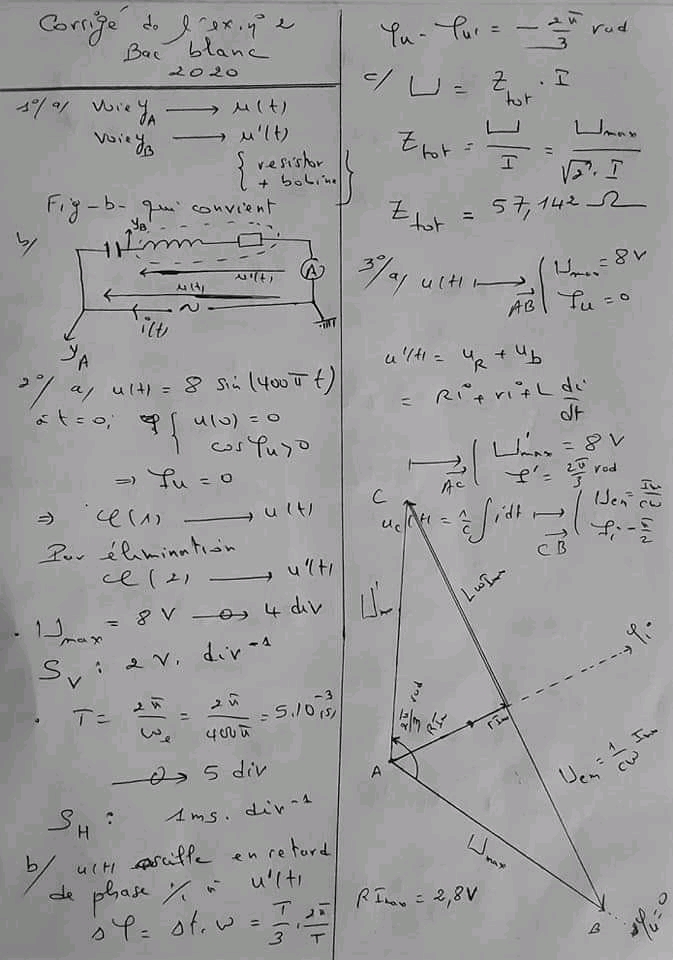 Corrigé de l'ex. n° 2
Bac blanc
2020
1°/ a/ voie y_A → u(t)
voie y_B → u'(t)
{ resistor
+ bobine }
Fig-b- qui convient
b/
y_B
u'(t)
A
u(t)
~
i(t)
y_A
2°/ a/ u(t) = 8 sin(400πt)
à t = 0, { u(0) = 0
cos φu > 0
⇒ φu = 0
⇒ Cℓ(1) → u(t)
Par élimination
Cℓ(2) → u'(t)
. Umax = 8 V → 4 div
S_V : 2 V. div⁻¹
. T = 2π/ωe = 2π/400π = 5.10⁻³(s)
→ 5 div
S_H : 1ms. div⁻¹
b/ u(t) oscille en retard
de phase % à u'(t)
Δφ = Δt. ω = T/3 . 2π/T
φu - φu' = - 2π/3 rad
c/ U = Ztot . I
Ztot = U/I = Umax/√2 . I
Ztot = 57,142 Ω
3°/ a/ u(t) → AB { Umax = 8 V
φu = 0
u'(t) = uR + ub
= Ri + ri + L di/dt
→ AC { U'max = 8 V
φ' = 2π/3 rad
uc(t) = 1/C ∫ idt → CB { Ucm = Im/Cω
φi - π/2
C
U'm
LωIm
φi
2π/3 rad
RIm
rIm
A
Ucm = 1/Cω Im
Umax
RImax = 2,8V
B
φu = 0